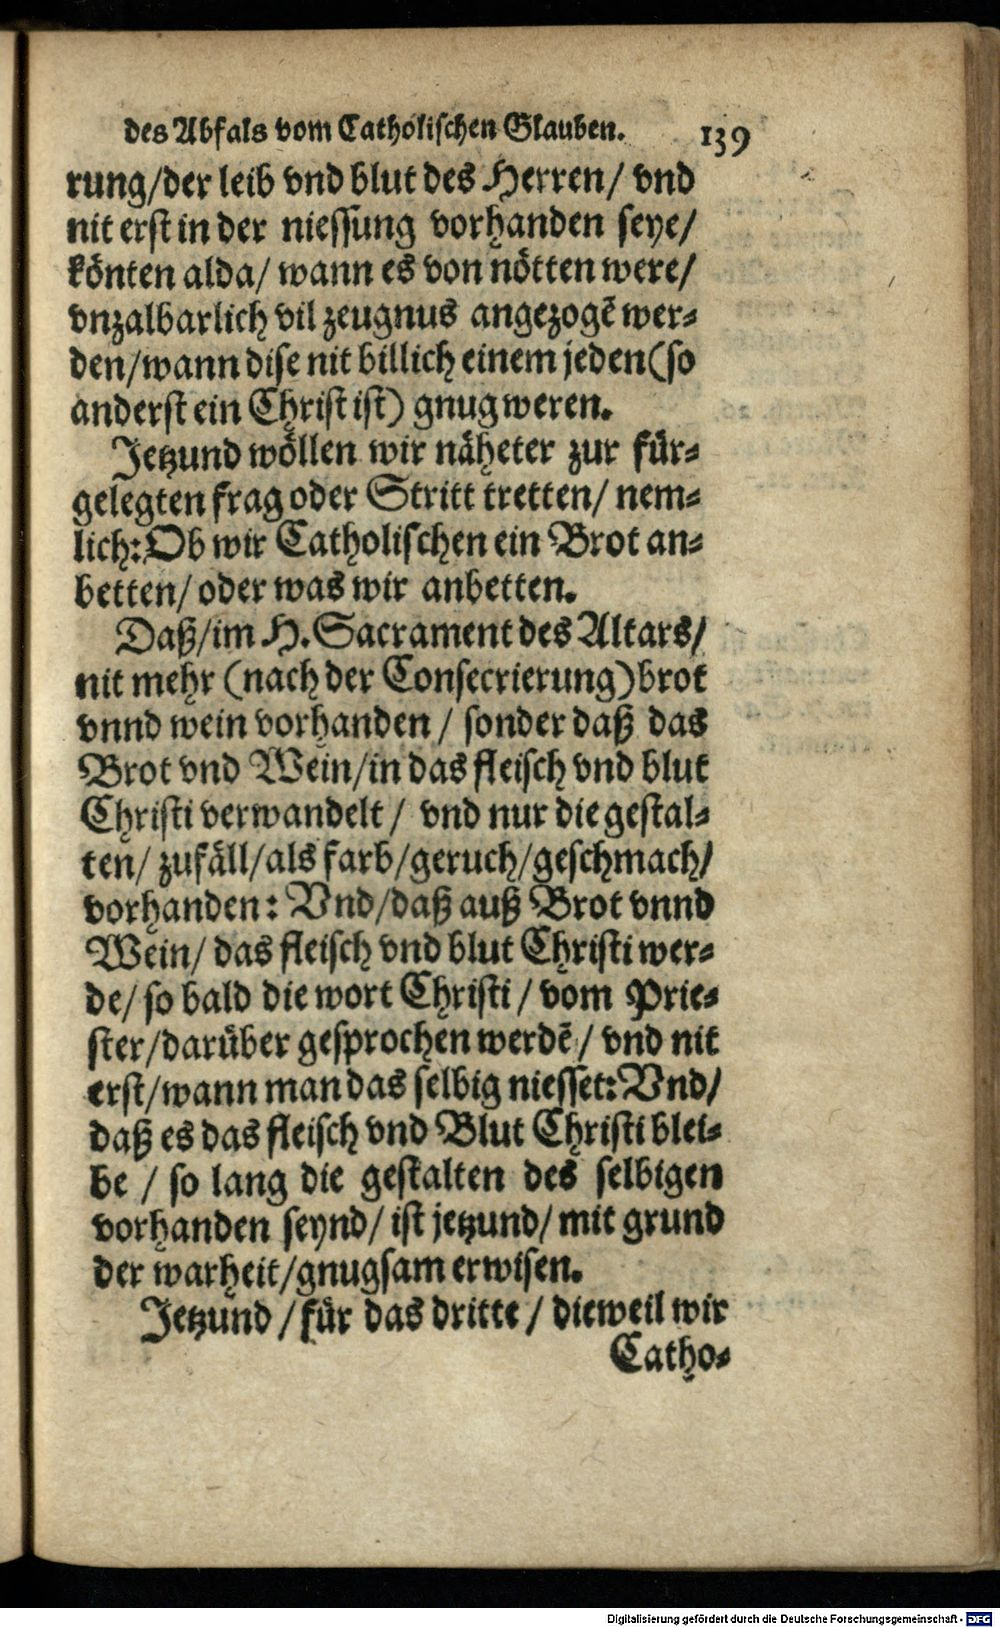 des Abfals vom Catholischen Glauben. 139
rung/der leib vnd blut des Herren/ vnd
nit erst in der niessung vorhanden seye/
könten alda/ wann es von nötten were/
vnzalbarlich vil zeugnus angezogē wer-
den/wann dise nit billich einem jeden(so
anderst ein Christ ist) gnug weren.
Jetzund wöllen wir näheter zur für-
gelegten frag oder Stritt tretten/ nem-
lich: Ob wir Catholischen ein Brot an-
betten/ oder was wir anbetten.
Daß/im H. Sacrament des Altars/
nit mehr (nach der Consecrierung)brot
vnnd wein vorhanden / sonder daß das
Brot vnd Wein/in das fleisch vnd blut
Christi verwandelt / vnd nur die gestal-
ten/ zufäll/als farb/geruch/geschmach/
vorhanden: Vnd/daß auß Brot vnnd
Wein/ das fleisch vnd blut Christi wer-
de/ so bald die wort Christi / vom Prie-
ster/darüber gesprochen werdē / vnd nit
erst/wann man das selbig niesset: Vnd/
daß es das fleisch vnd Blut Christi blei-
be / so lang die gestalten des selbigen
vorhanden seynd/ ist jetzund/ mit grund
der warheit/gnugsam erwisen.
Jetzund / für das dritte / dieweil wir
Catho-
Digitalisierung gefördert durch die Deutsche Forschungsgemeinschaft - DFG